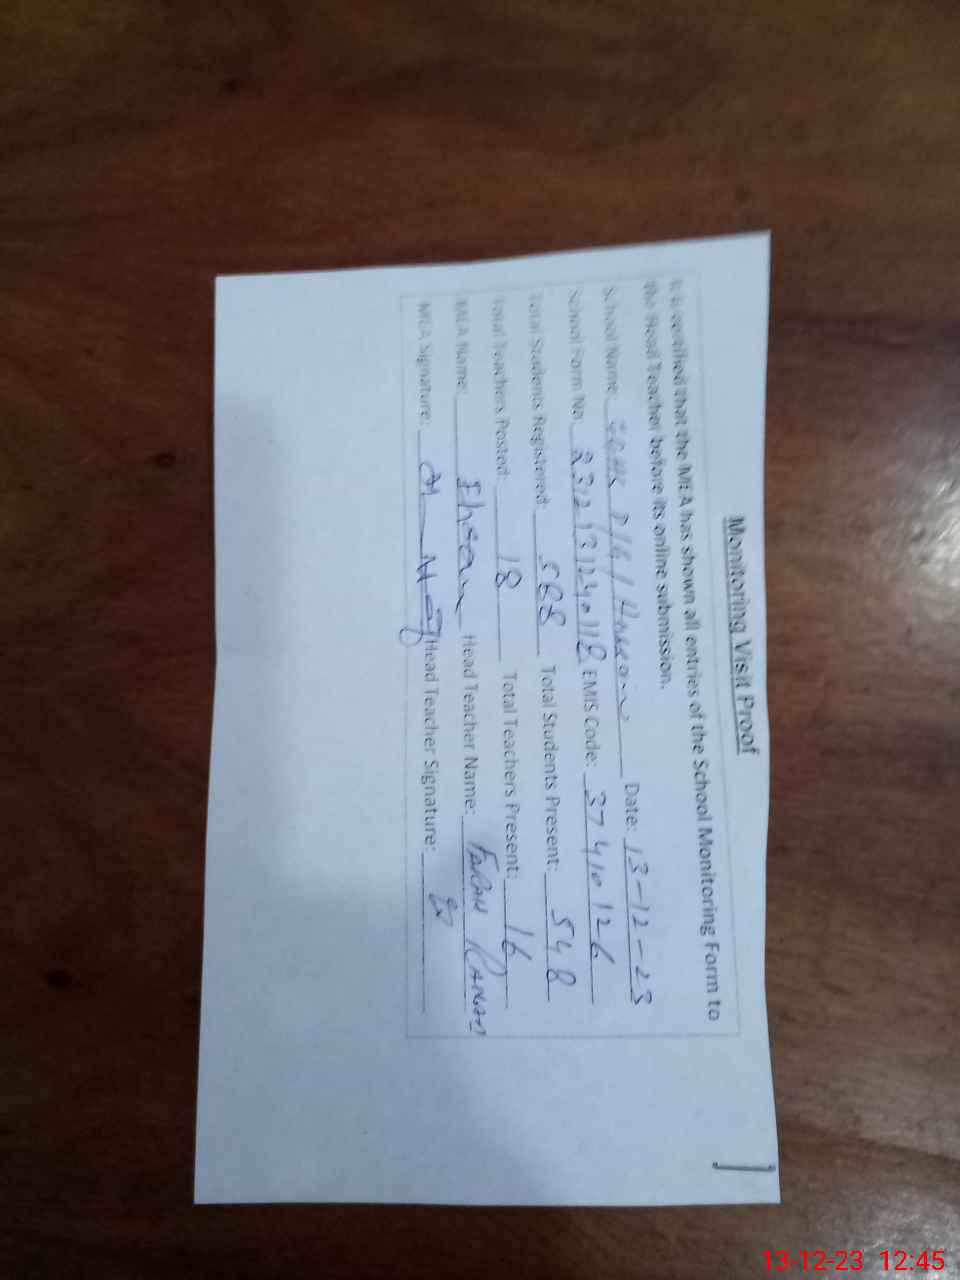 Monitoring Visit Proof
It is certified that the MEA has shown all entries of the School Monitoring Form to
the Head Teacher before its online submission.
School Name: Date: 13-12-23
School Form No: EMIS Code: 37410126
Total Students Registered: 588 Total Students Present: 548
Total Teachers Posted: 18 Total Teachers Present: 16
MEA Name: Ehsan Head Teacher Name: FARAH
MEA Signature: Head Teacher Signature:
1
13-12-23 12:45